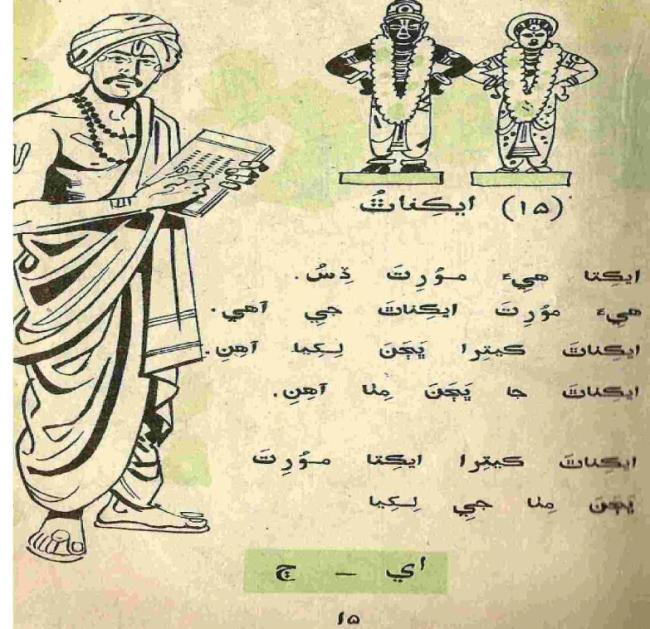 (۱۵) ايڪِناٿُ
ايڪِتا هيءَ موُرِتَ ڏِسُ.
هيءَ موُرِتَ ايڪِناٿَ جي آهي.
ايڪِناٿَ ڪيتِرا ڀَڄَنَ لِکيا آهِنِ.
ايڪِناٿَ جا ڀَڄَنَ مِٺا آهِنِ.
ايڪِناٿَ ڪيتِرا ايڪِتا موُرِتَ
ڀَڄَنَ مِٺا جي لِکيا
اي – ڄ
۱۵